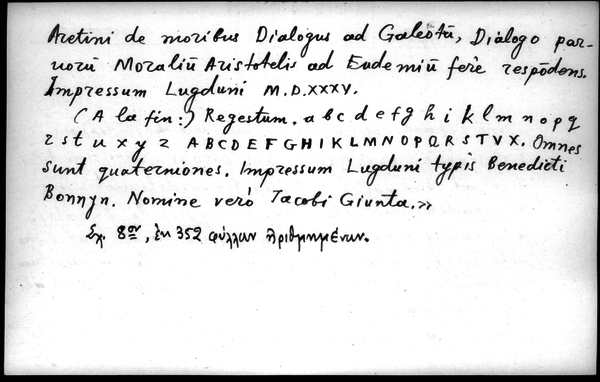 Aretini de moribus Dialogus ad Galeotū, Dialogo par-
uorū Moraliū Aristotelis ad Eudemiū ferè respōdens.
Impressum Lugduni M.D.XXXV.
(A la fin:) Regestum. a b c d e f g h i k l m n o p q
r s t u x y z A B C D E F G H I K L M N O P Q R S T V X. Omnes
sunt quaterniones. Impressum Lugduni typis Benedicti
Bonnyn. Nomine verò Jacobi Giunta.»
Σχ. 8ον, ἐκ 352 φύλλων ἠριθμημένων.